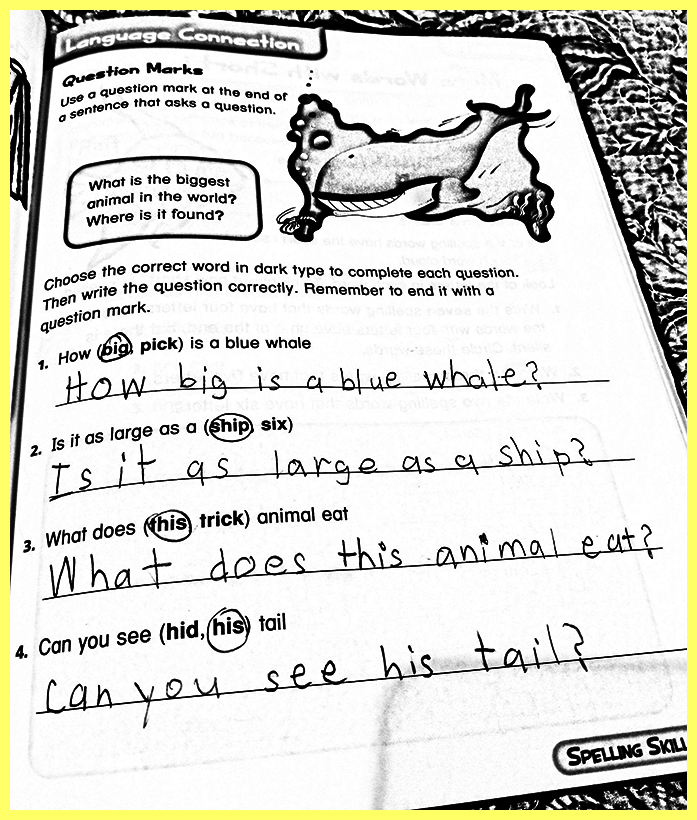 Language Connection
Question Marks
Use a question mark at the end of
a sentence that asks a question.
What is the biggest
animal in the world?
Where is it found?
Choose the correct word in dark type to complete each question.
Then write the question correctly. Remember to end it with a
question mark.
1. How (big, pick) is a blue whale
How big is a blue whale?
2. Is it as large as a (ship, six)
Is it as large as a ship?
3. What does (this, trick) animal eat
What does this animal eat?
4. Can you see (hid, his) tail
Can you see his tail?
SPELLING SKILL